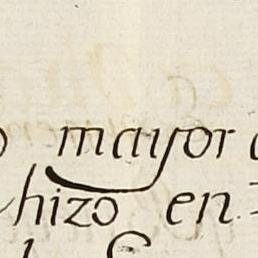 mayor
hizo en